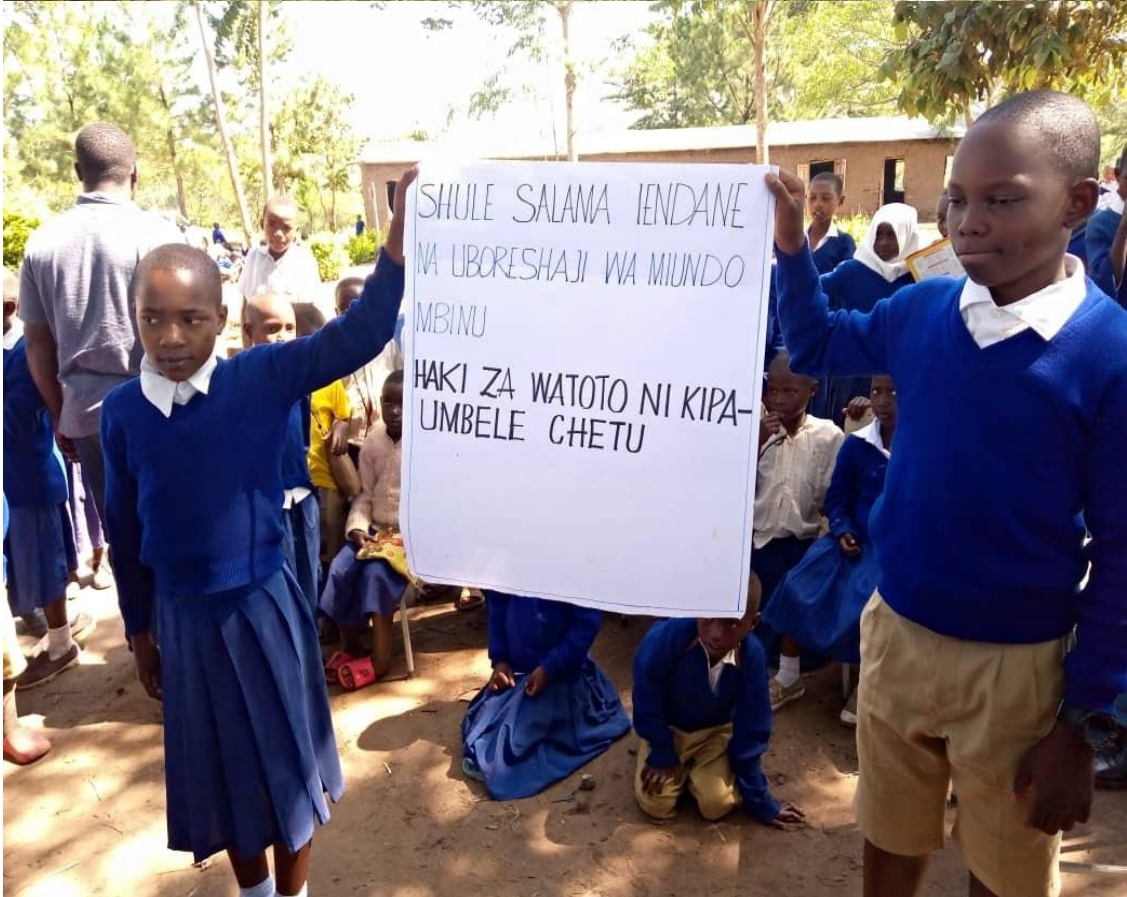 SHULE SALAMA IENDANE
NA UBORESHAJI WA MIUNDO
MBINU
HAKI ZA WATOTO NI KIPA-
UMBELE CHETU